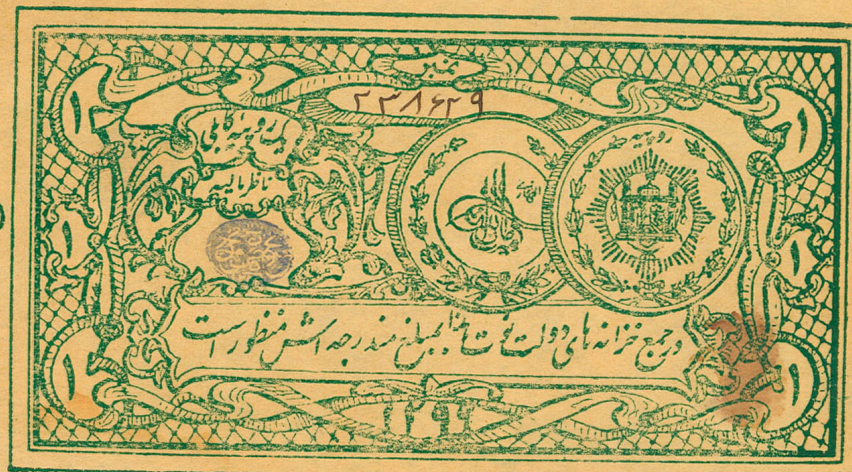 نمبر
۲۳۸۶۲۹
۱
۱
روپیه
یک روپیه کابلی
ناظر مالیه
۱
۱
در جمع خزانه های دولت نوت هذا بمبلغ مندرجه اش منظور است
۱
۱